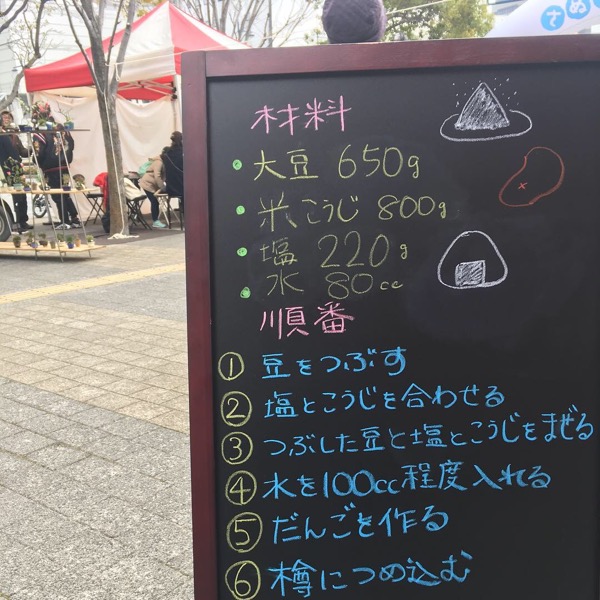 さぬ
材料
・大豆 650g
・米こうじ 800g
・塩 220g
・水 80cc
順番
① 豆をつぶす
② 塩とこうじを合わせる
③ つぶした豆と塩とこうじをまぜる
④ 水を100cc程度入れる
⑤ だんごを作る
⑥ 樽につめ込む